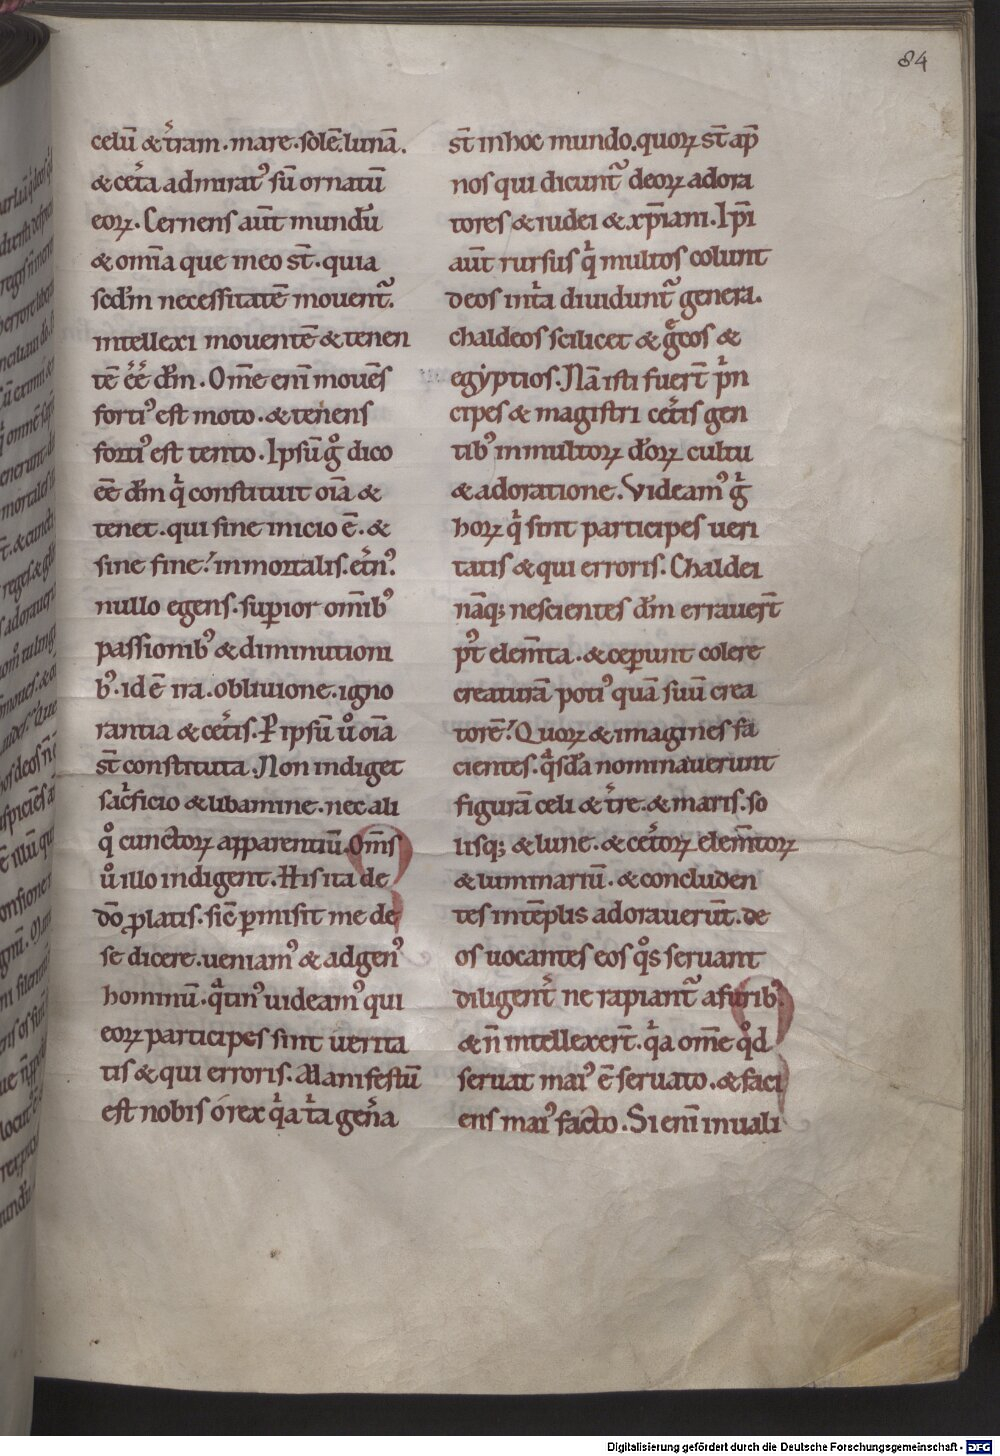 84
celū & t̾ram. mare. solē. lunā.
& cet̾a admirat᾽ sū ornatū
eoꝝ. Cernens aūt mundū
& om̄ia que in eo st̄. quia
scd̄m necessitatē mouent᷑.
intellexi mouentē & tenen
tē ēē dm̄. Om̄e eni mouēs
forti᾽ est moto. & tenens
forti᾽ est tento. Ipsū gͦ dico
ēē dm̄ qͥ constituit oīa &
tenet. qui sine inicio ē. &
sine fine. inmortalis. et̾n᾽.
nullo egens. suꝑior om̄ib᾽
passionib᾽ & diminutioni
b᾽. id ē ira. obliuione. igno
rantia & cet̾is. Ꝑ ipsū uͦ oīa
st̄ constituta. Non indiget
sac̾ficio & libamine. nec ali
qͦ cunctoꝝ apparentiū. Om̄s
uͦ illo indigent. His ita de
dō ꝓlatis. sic̄ ꝑmisit me de
se dicere. ueniam᾽ & ad gen᾽
hominū. qᷓtin᾽ uideam᾽ qui
eoꝝ participes sint uerita
tis & qui erroris. Manifestū
est nobis o rex qͥa t̾a gen̾a
st̄ in hoc mundo. quoꝝ st̄ ap̄
nos qui dicunt᷑ deoꝝ adora
tores & iudei & xp̄iani. Ip̄i
aūt rursus qͥ multos colunt
deos int̾a diuidunt᷑ genera.
chaldeos scilicet & gͤcos &
egyptios. Nā isti fuert̄ pͥn
cipes & magistri cet̾is gen
tib᾽ in multoꝝ doꝝ cultu
& adoratione. Videam᾽ gͥ
hoꝝ qͥ sint participes ueri
tatis & qui erroris. Chaldei
nāqꝫ nescientes dm̄ errauert̄
p᾽t elem̄ta. & ceperunt colere
creaturā poti᾽ quā suū crea
torē. Quoꝝ & imagines fa
cientes. qᷓsdā nominauerunt
figurā celi & t̾re. & maris. so
lisqꝫ & lune. & cet̾oꝝ elem̄toꝝ
& luminariū. & concluden
tes in tēplis adorauerūt. de
os uocantes eos qͦs seruant
diligent̾ ne rapiant᷑ a furib᾽.
& n̄ intellexert̄. qͥa om̄e qͦd
seruat mai᾽ ē seruato. & faci
ens mai᾽ facto. Si enī inuali
Digitalisierung gefördert durch die Deutsche Forschungsgemeinschaft - DFG